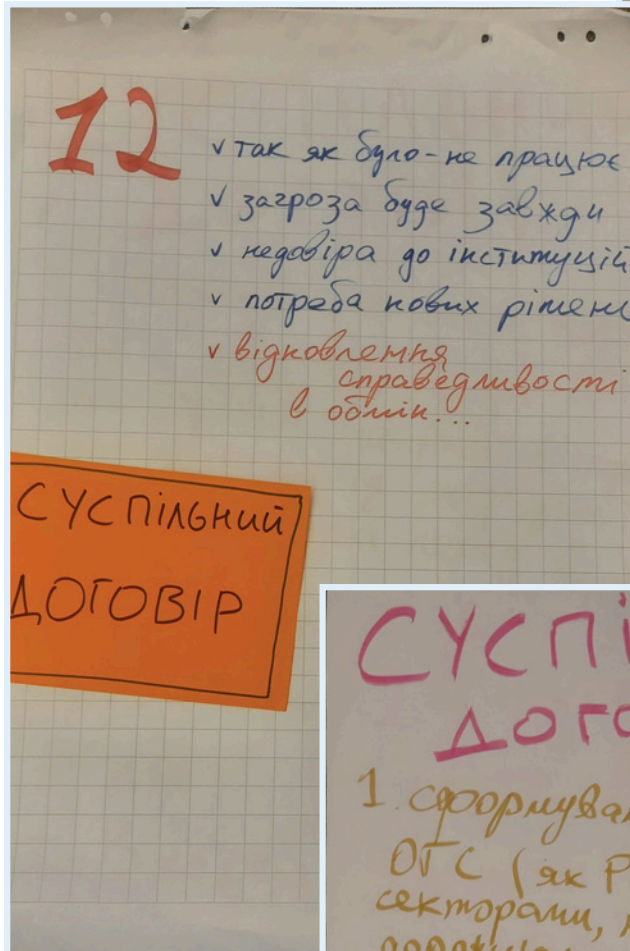 12
✓ так як було - не працює
✓ загроза буде завжди
✓ недовіра до інституцій
✓ потреба нових рішень
✓ відновлення
справедливості
в обмін...
СУСПІЛЬНИЙ
ДОГОВІР
СУСПІ
ДОГО
1. сформува
ОГС (як Р
секторами,